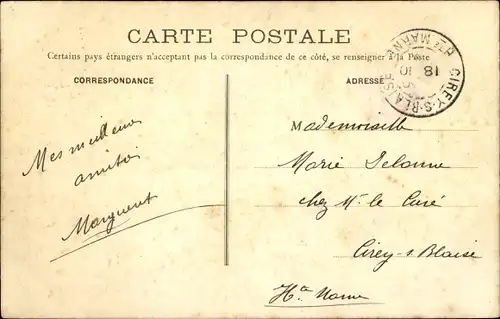 CARTE POSTALE
Certains pays étrangers n'acceptant pas la correspondance de ce côté, se renseigner à la Poste
CORRESPONDANCE
ADRESSE
CIREY-S-BLAISE
Hte MARNE
18 10
Mes meilleures
amitiés
Marguerite
Mademoiselle
Marie Delanne
chez Mr. le Curé
Cirey-s Blaise
Hte Marne